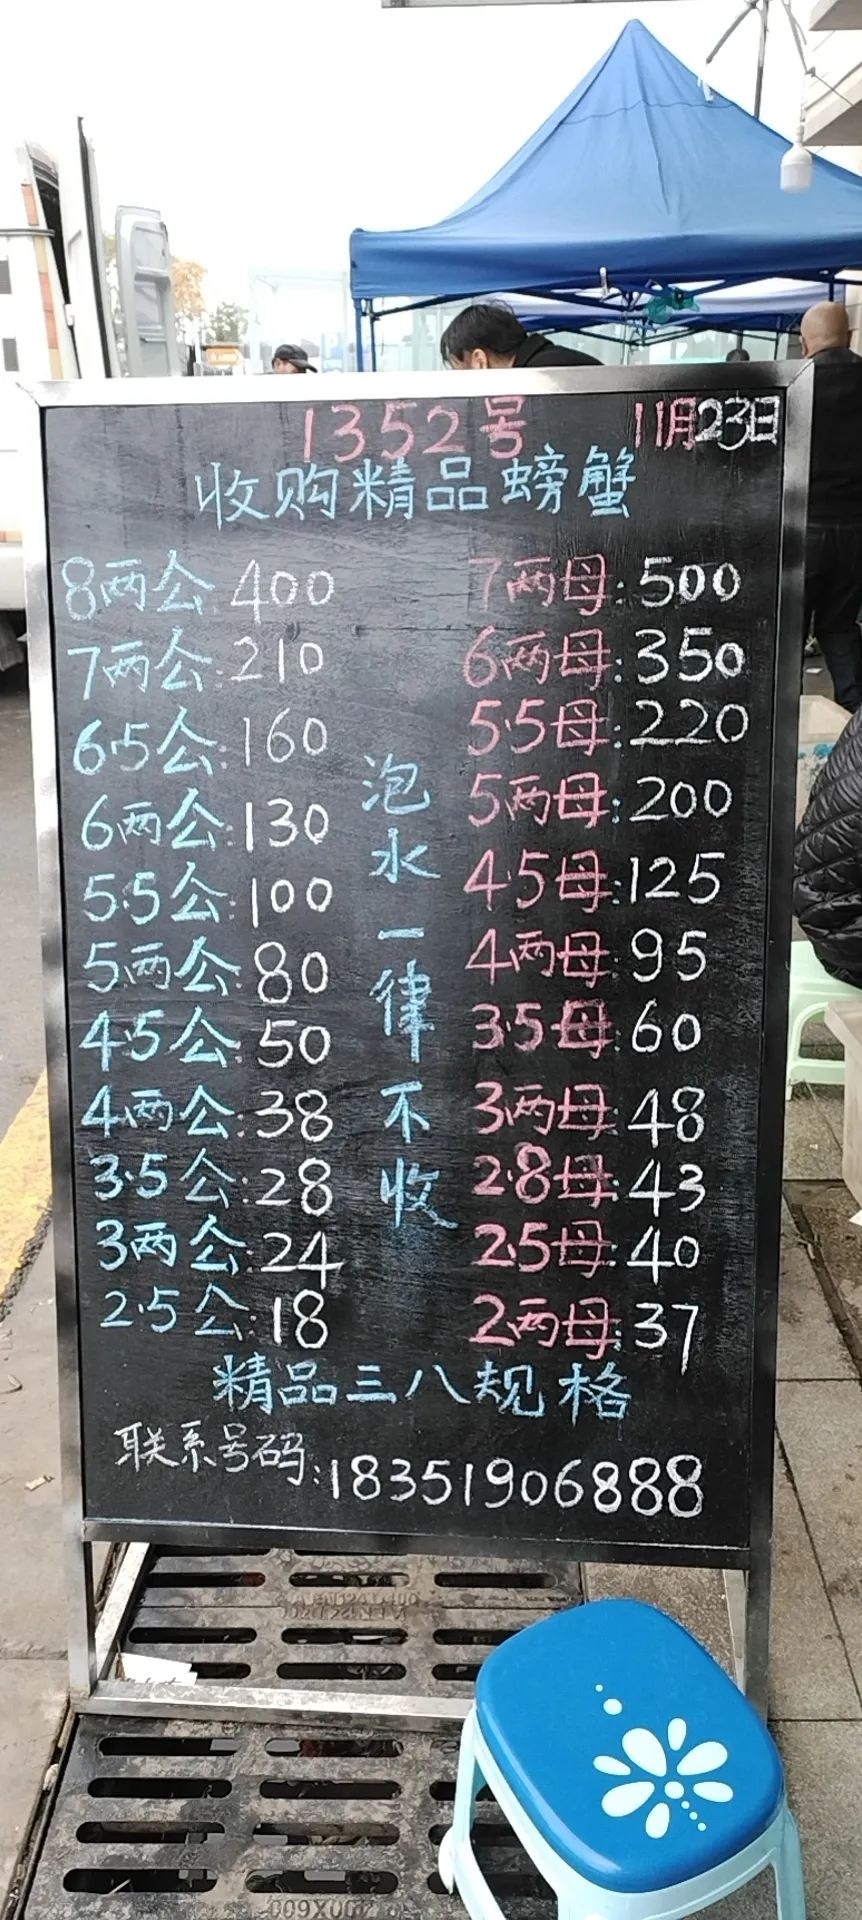 1352号 11月23日
收购精品螃蟹
8两公:400 7两母:500
7两公:210 6两母:350
6.5公:160 5.5母:220
6两公:130 5两母:200
5.5公:100 4.5母:125
5两公:80 4两母:95
4.5公:50 3.5母:60
4两公:38 3两母:48
3.5公:28 2.8母:43
3两公:24 2.5母:40
2.5公:18 2两母:37
泡水一律不收
精品三八规格
联系号码:18351906888